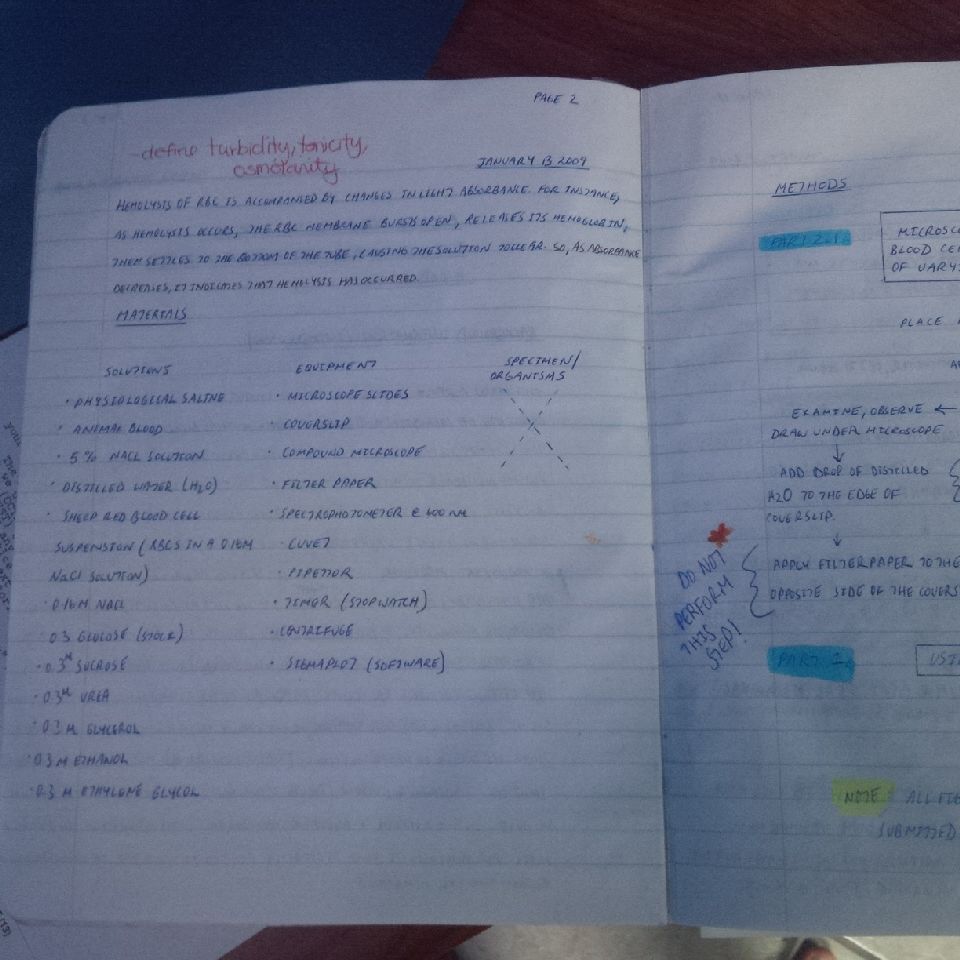 PAGE 2
-define turbidity, tonicity,
osmolarity
JANUARY 13 2009
HEMOLYSIS OF RBC IS ACCOMPANIED BY CHANGES IN LIGHT ABSORBANCE. FOR INSTANCE,
AS HEMOLYSIS OCCURS, THE RBC MEMBRANE BURSTS OPEN, RELEASES ITS HEMOGLOBIN,
THEM SETTLES TO THE BOTTOM OF THE TUBE, CAUSING THE SOLUTION TO CLEAR. SO, AS ABSORBANCE
DECREASES, IT INDICATES THAT HEMOLYSIS HAS OCCURRED.
MATERIALS
SOLUTIONS
• PHYSIOLOGICAL SALINE
• ANIMAL BLOOD
• 5% NACL SOLUTION
• DISTILLED WATER (H2O)
• SHEEP RED BLOOD CELL
SUSPENSION (RBCS IN A 0.16M
NaCl SOLUTION)
• 0.16M NACL
• 0.3 GLUCOSE (STOCK)
• 0.3M SUCROSE
• 0.3M UREA
• 0.3 M GLYCEROL
• 0.3 M ETHANOL
• 0.3 M ETHYLENE GLYCOL
EQUIPMENT
• MICROSCOPE SLIDES
• COVERSLIP
• COMPOUND MICROSCOPE
• FILTER PAPER
• SPECTROPHOTOMETER @ 600 NM
• CUVET
• PIPETTOR
• TIMER (STOPWATCH)
• CENTRIFUGE
• SIGMAPLOT (SOFTWARE)
SPECIMEN/
ORGANISMS
METHODS
PART 2.1
MICROSCO
BLOOD CE
OF VARY
PLACE
EXAMINE, OBSERVE ←
DRAW UNDER MICROSCOPE
↓
ADD DROP OF DISTILLED
H2O TO THE EDGE OF
COVERSLIP.
↓
DO NOT
PERFORM
THIS
STEP!
APPLY FILTER PAPER TO THE
OPPOSITE SIDE OF THE COVERS
PART 2.
USI
NOTE ALL FI
SUBMITTED